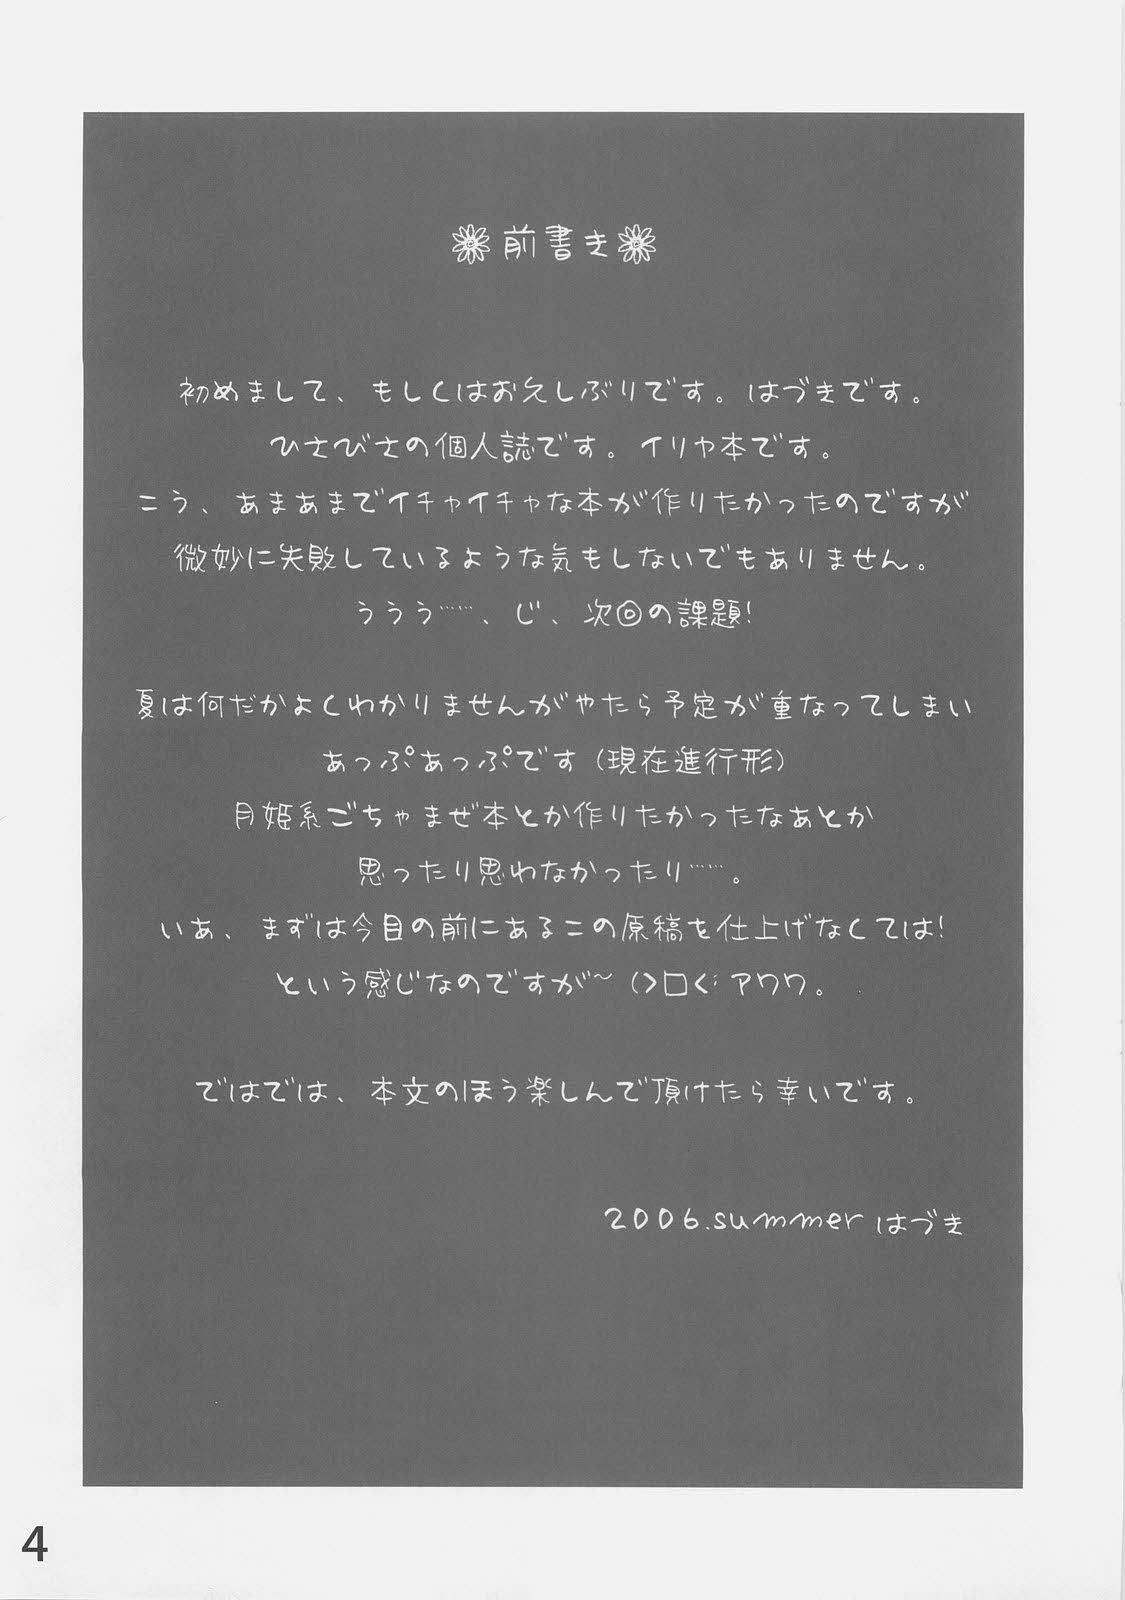 前書き
初めまして、もしくはお久しぶりです。はづきです。
ひさびさの個人誌です。イリヤ本です。
こう、あまあまでイチャイチャな本が作りたかったのですが
微妙に失敗しているような気もしないでもありません。
ううう……、じ、次回の課題!
夏は何だかよくわかりませんがやたら予定が重なってしまい
あっぷあっぷです(現在進行形)
月姫系ごちゃまぜ本とか作りたかったなあとか
思ったり思わなかったり……。
いあ、まずは今目の前にあるこの原稿を仕上げなくては!
という感じなのですが~(>□<;アワワ。
ではでは、本文のほう楽しんで頂けたら幸いです。
2006.summer はづき
4